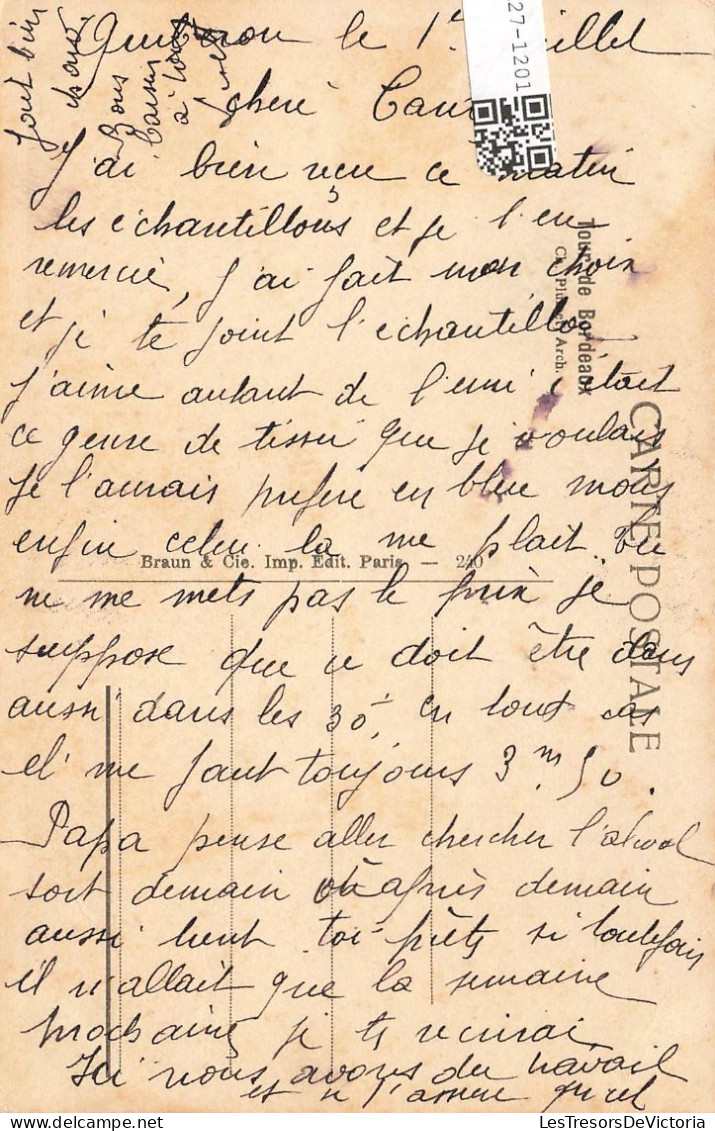 le 1er juillet
chère
J'ai bien reçu ce matin
les échantillons et je t'en
remercie, j'ai fait mon choix
et je te joint l'echantillon
j'aime autant de l'uni c'était
ce genre de tissu que je voulais
Je l'aurais préféré en bleu mais
enfin celui la me plait. Tu
ne me mets pas le prix je
suppose que ce doit être dans
aussi dans les 30f, en tout cas
il me faut toujours 3m50.
Papa pense aller chercher l'alcool
soit demain ou après demain
aussi tient toi prêts si toutefois
il n'allait que la semaine
prochaine je te recrirai
Ici nous avons du travail
et
Tout bien
chaud
Bons
baisers
à tous
27-1201
Tour de Bordeaux
Ch. Plumet, Arch.
CARTE POSTALE
Braun & Cie. Imp. Edit. Paris — 240
LesTresorsDeVictoria